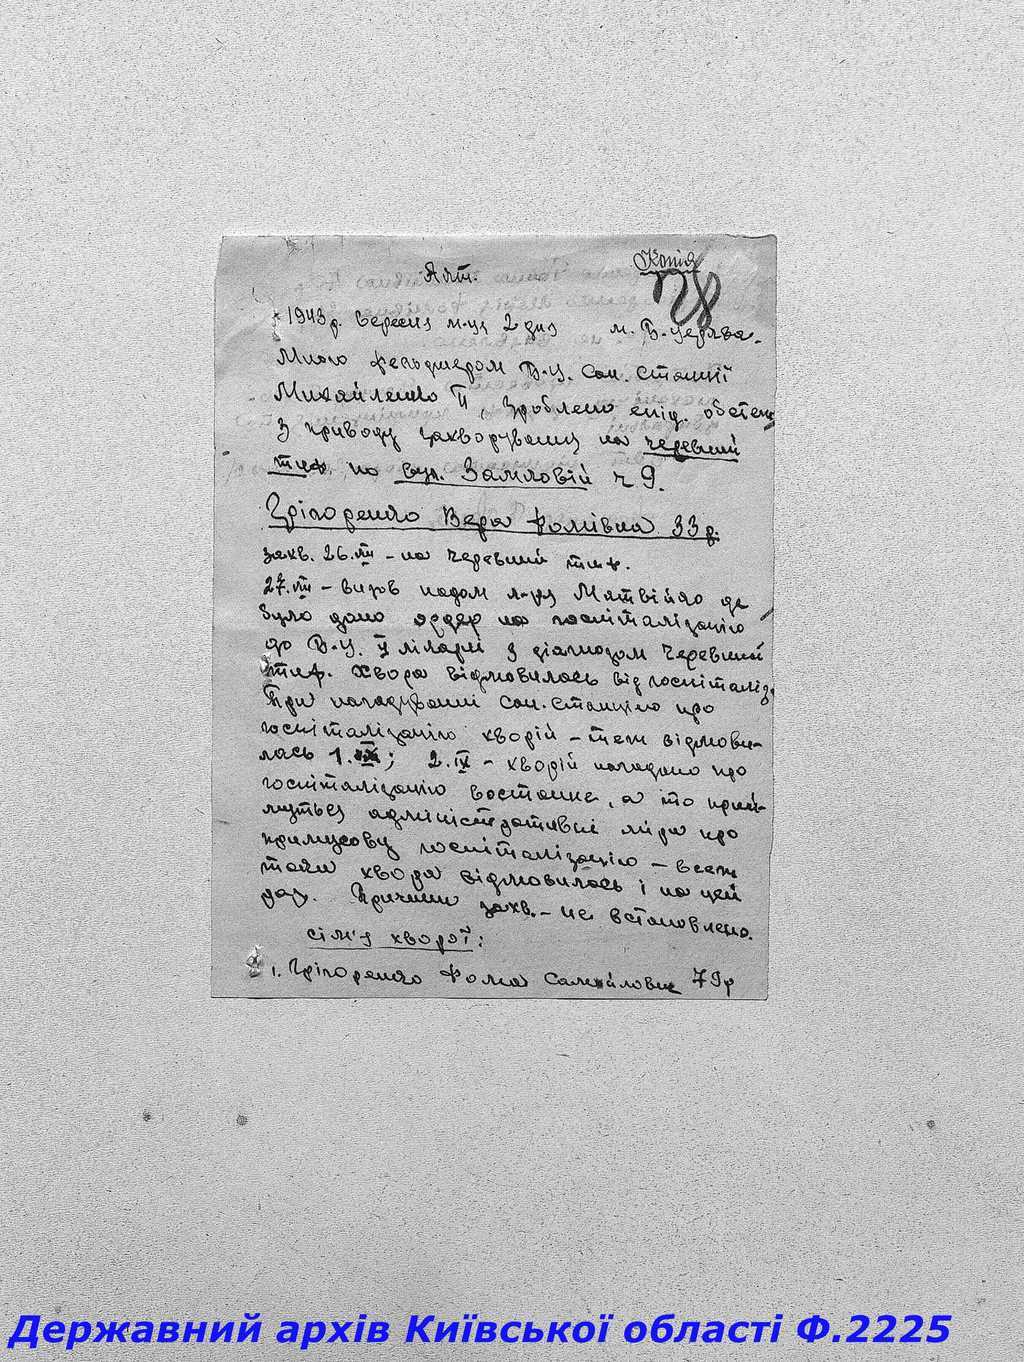 Копія
128
Акт.
1943 р. вересня м-ця 2 дня м. Б-Церква.
Мною фельдшером Б-Ц. Сан. Станції
Михайленко П, зроблено епід. обстеж
з приводу захворування на черевний
тиф по вул. Замковій ч 9.
Грігоренко Вера Фомівна 33 р.
захв. 26.VIII – на черевний тиф.
27.VIII – визов надом л-ря Матвійко де
було дано ордер на госпіталізацію
до Б-Ц. II лікарні з діагнозом Черевний
тиф. Хвора відмовилась від госпіталіз.
При нагадуванні Сан. Станцією про
госпіталізацію хворій – теж відмови-
лась 1.IX; 2.IX – хворій нагадано про
госпіталізацію востаннє, а то прий-
муться адміністративні міри про
примусову госпіталізацію – всеж
таки хвора відмовилась і на цей
раз. Причини захв. – не встановлено.
сім'я хворої:
1. Грігоренко Фома Самойлович 79 р
Державний архів Київської області Ф.2225